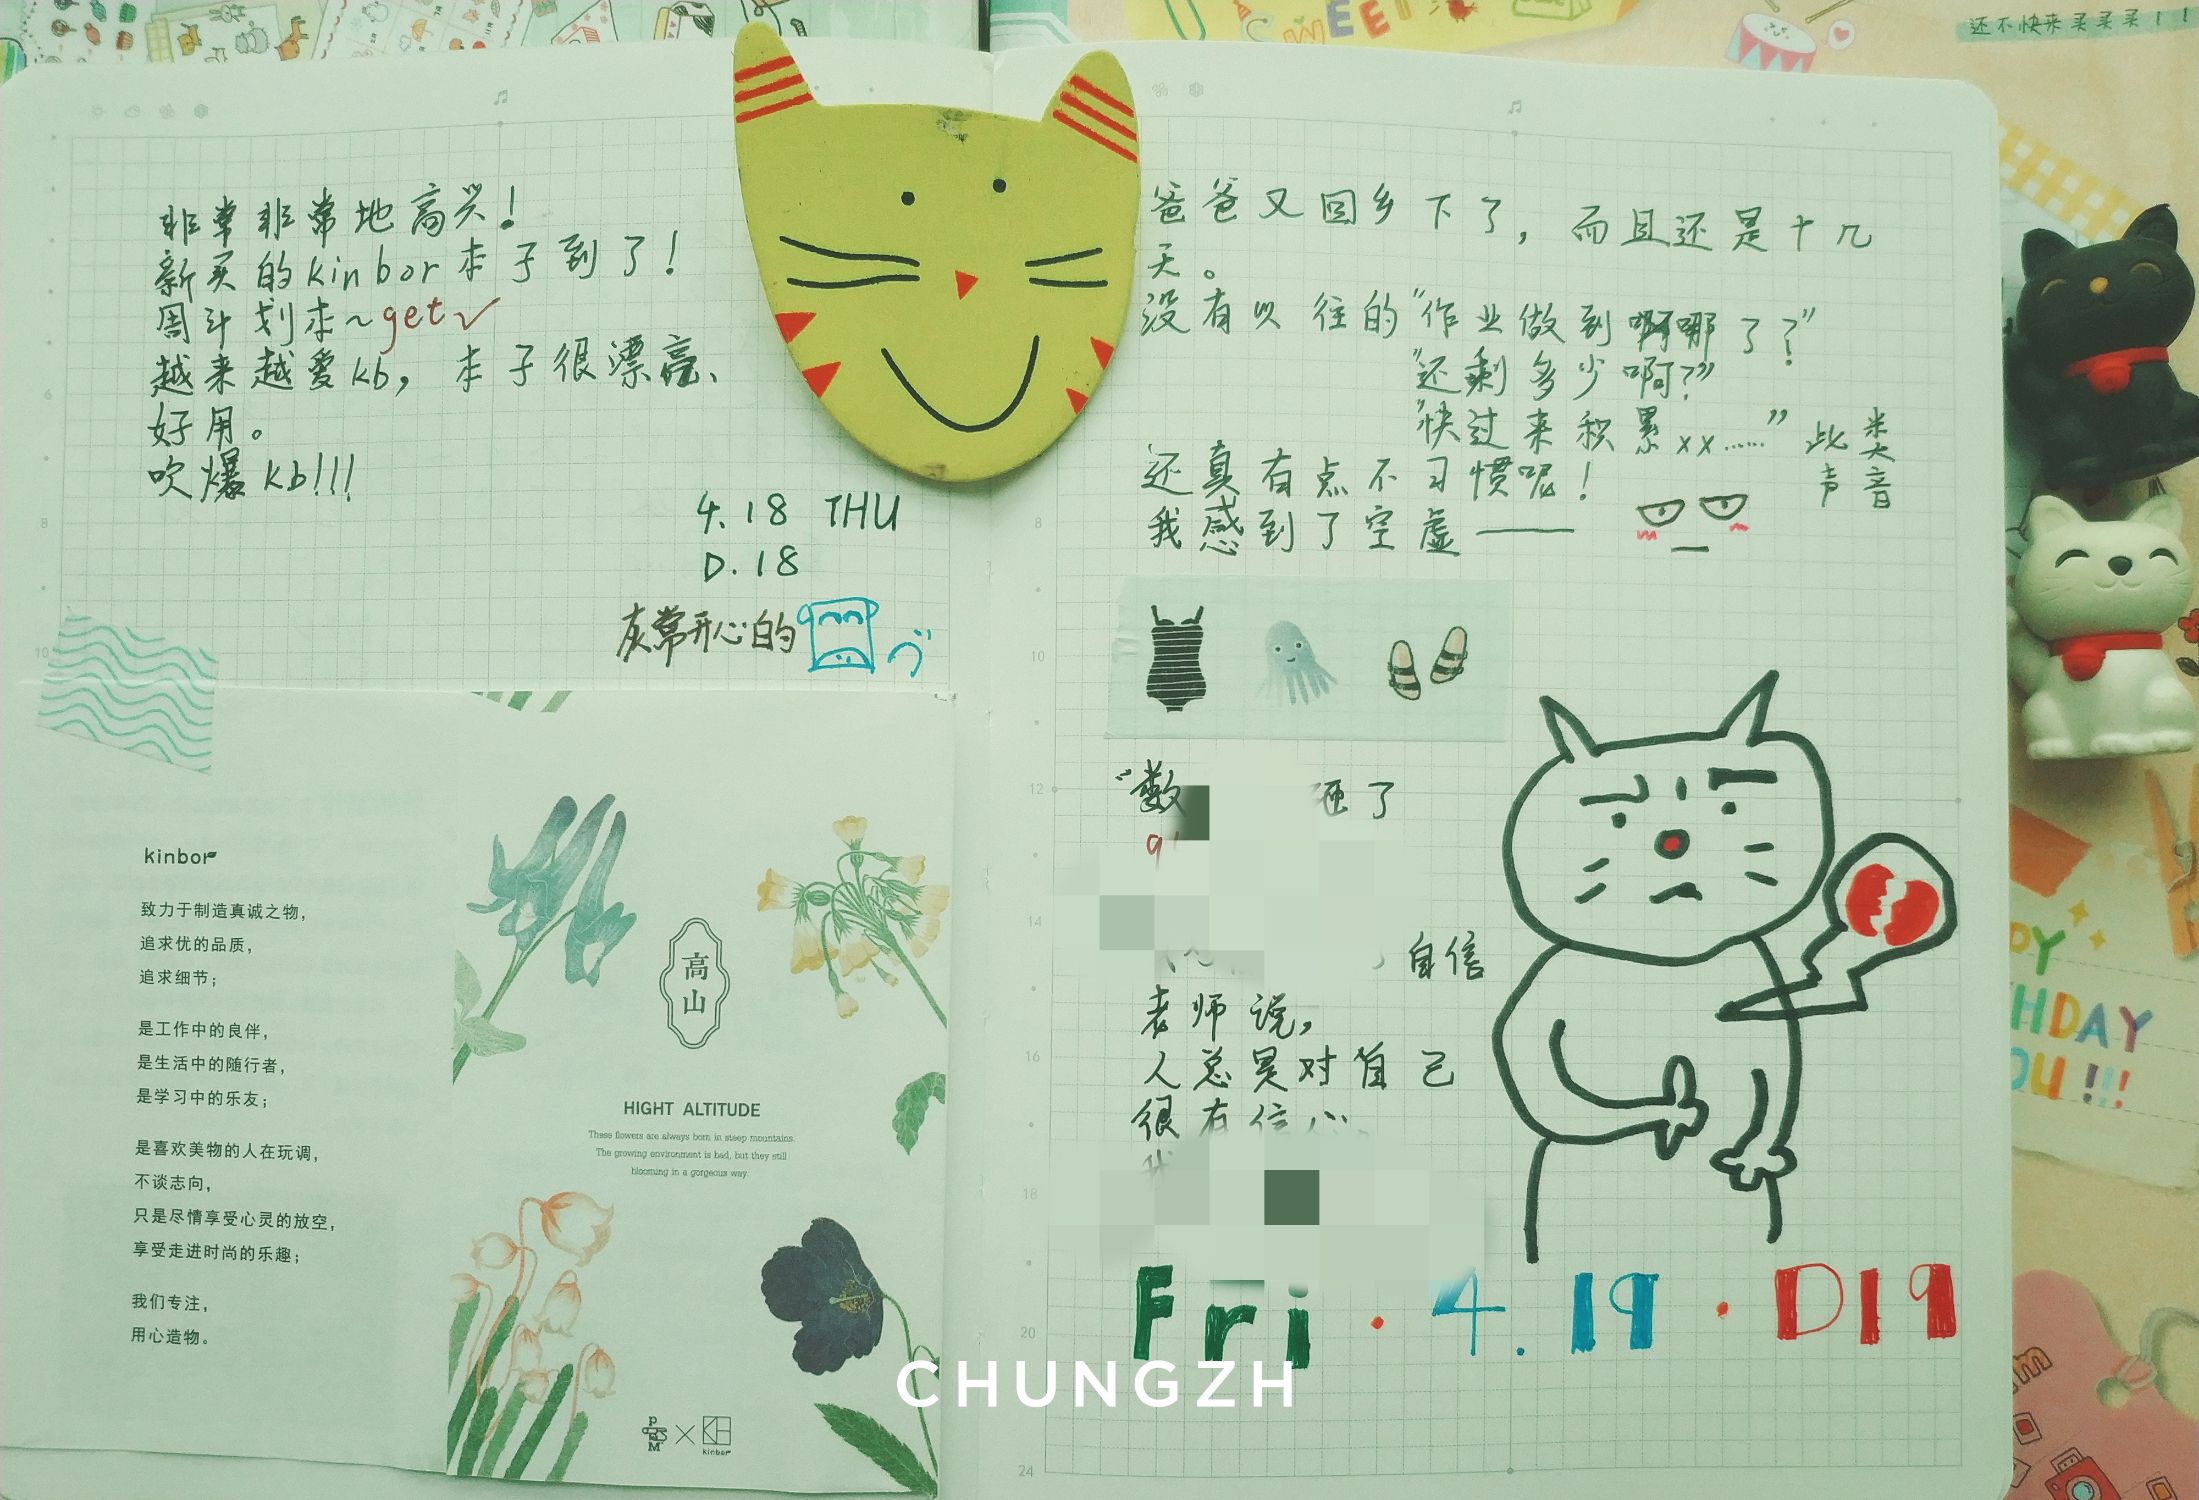 还不快来买买买！！
非常非常地高兴！
新买的kinbor本子到了！
周计划本~get✓
越来越爱kb，本子很漂亮、
好用。
吹爆kb!!!
4.18 THU
D.18
灰常开心的
kinbor
致力于制造真诚之物，
追求优的品质，
追求细节；
是工作中的良伴，
是生活中的随行者，
是学习中的乐友；
是喜欢美物的人在玩调，
不谈志向，
只是尽情享受心灵的放空，
享受走进时尚的乐趣；
我们专注，
用心造物。
高山
HIGHT ALTITUDE
These flowers are always born in steep mountains.
The growing environment is bad, but they still
blooming in a gorgeous way.
kinbor
爸爸又回乡下了，而且还是十几
天。
没有以往的"作业做到哪了？"
"还剩多少啊？"
"快过来积累xx……"此类声音
还真有点不习惯呢！
我感到了空虚——
"数
砸了
自信
老师说，
人总是对自己
很有信心
Fri · 4.19 · D19
CHUNGZH